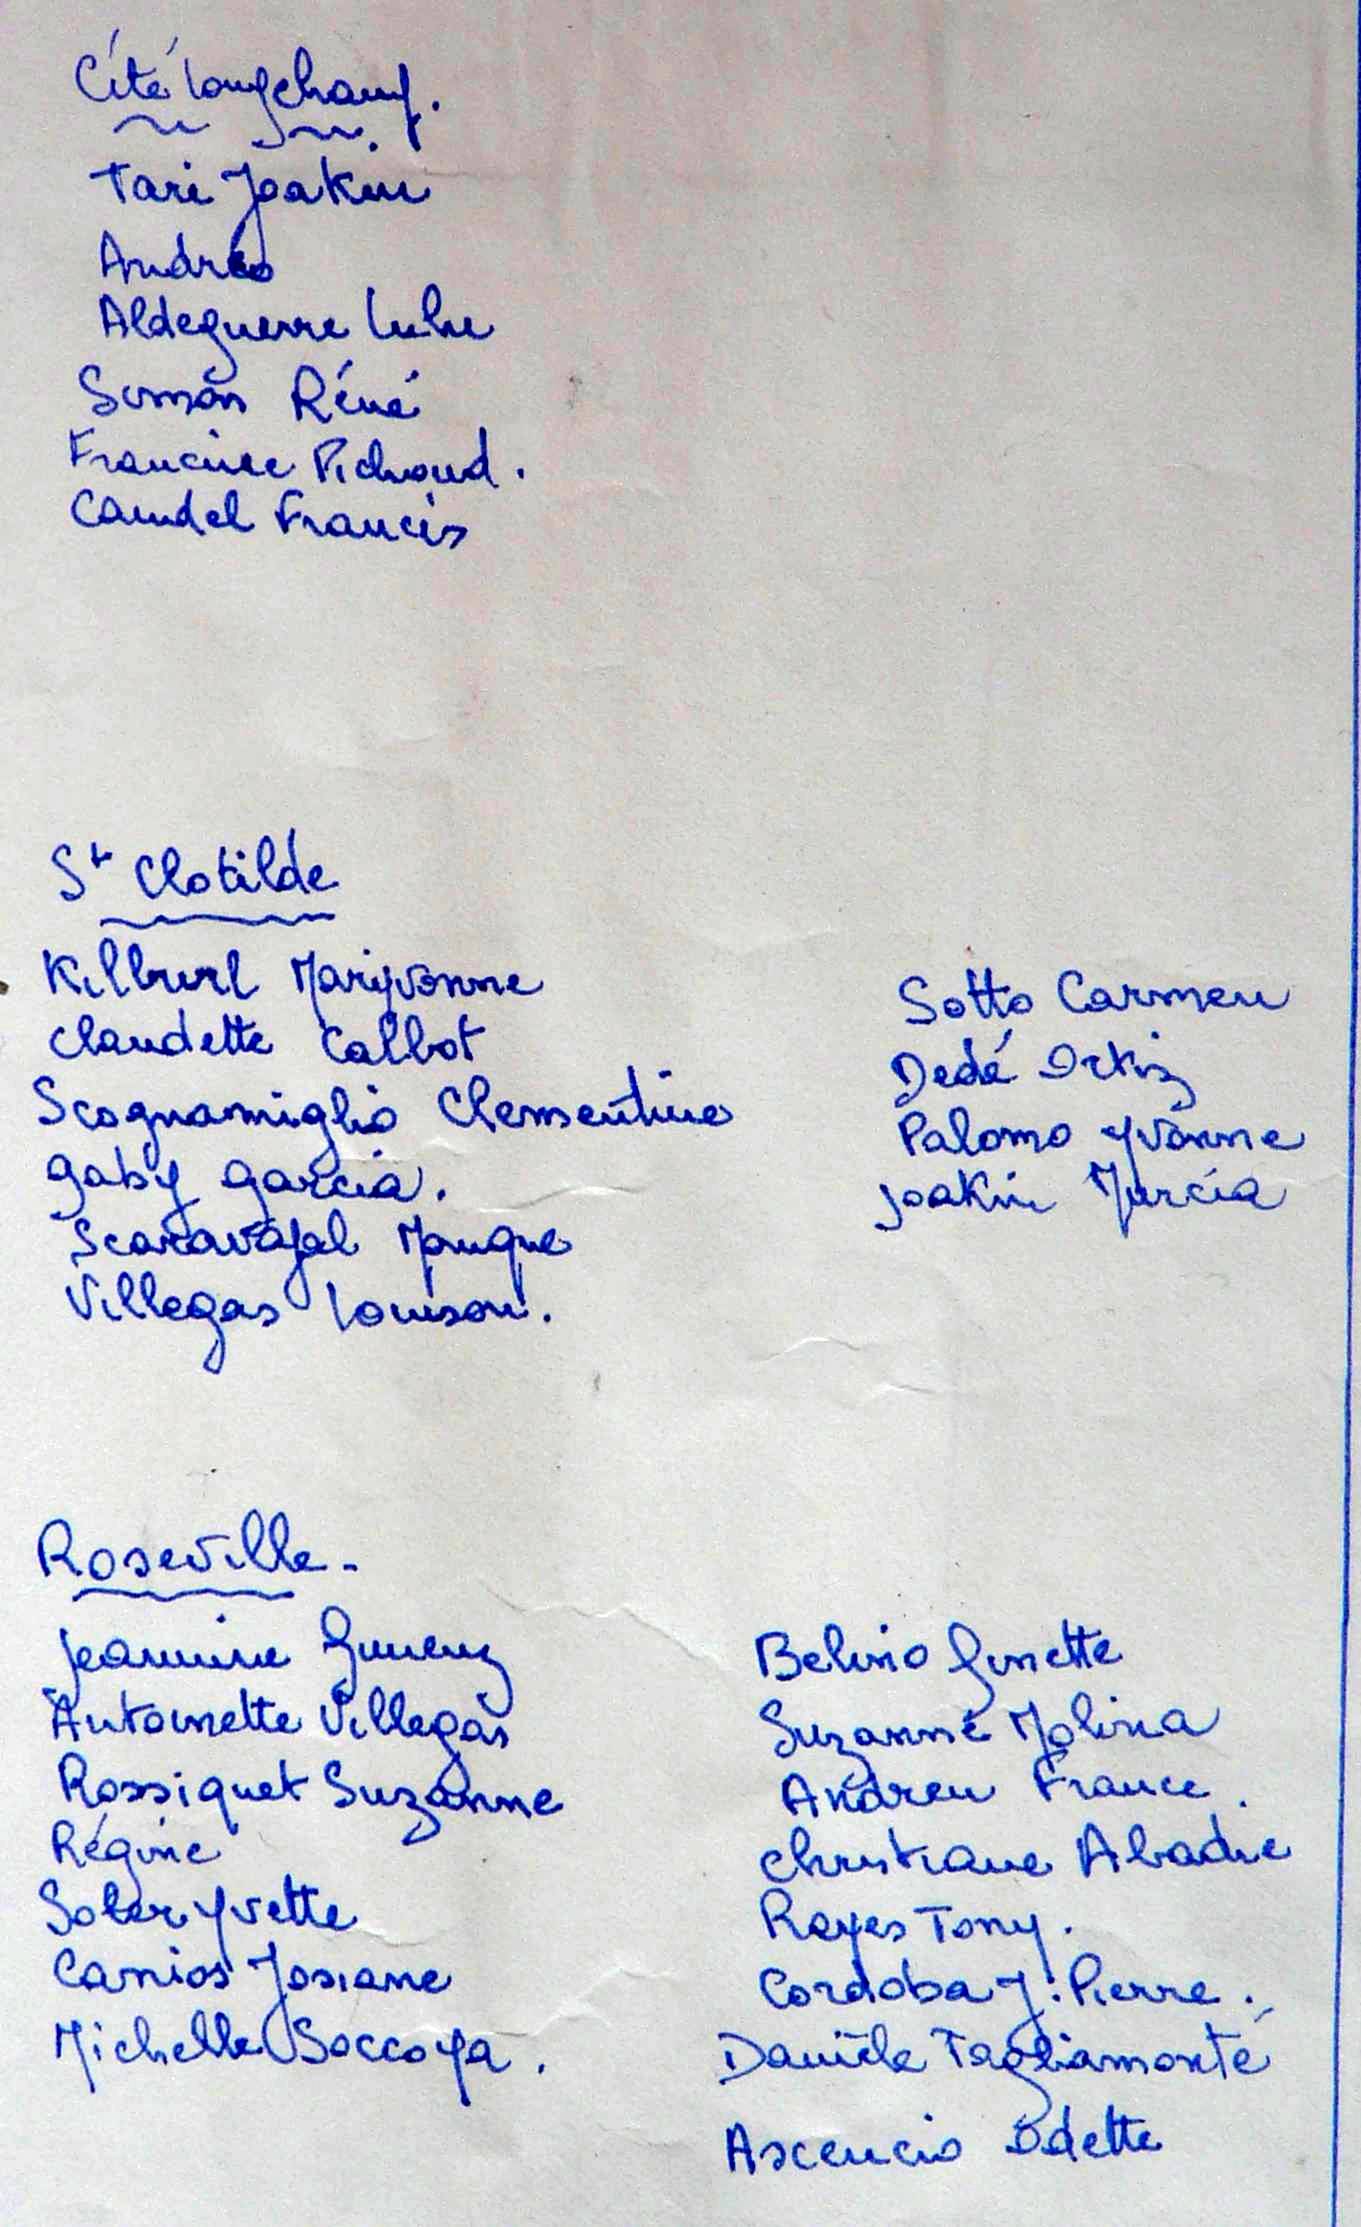 Cité Longchamp.
Tari Joakin
Andréo
Aldeguerre Lulu
Simon Réné
Francine Pichoud.
Caudel Francis
St Clotilde
Maryvonne
Claudette Calbot
Scognamiglio Clementine
Gaby Garcia.
Scaravajal Monique
Villegas Louison.
Sotto Carmen
Dedé Ortiz
Palomo Yvonne
Joakin Murcia
Roseville-
Jeannine Gimenez
Antoinette Villegas
Rossiquet Suzanne
Régine
Soler Yvette
Canios Josiane
Michelle Soccoya.
Belino Ginette
Suzanne Molina
Andreu France.
Christiane Abadie
Reyes Tony.
Cordoba J. Pierre.
Danièle Tagliamonté
Ascencio Odette